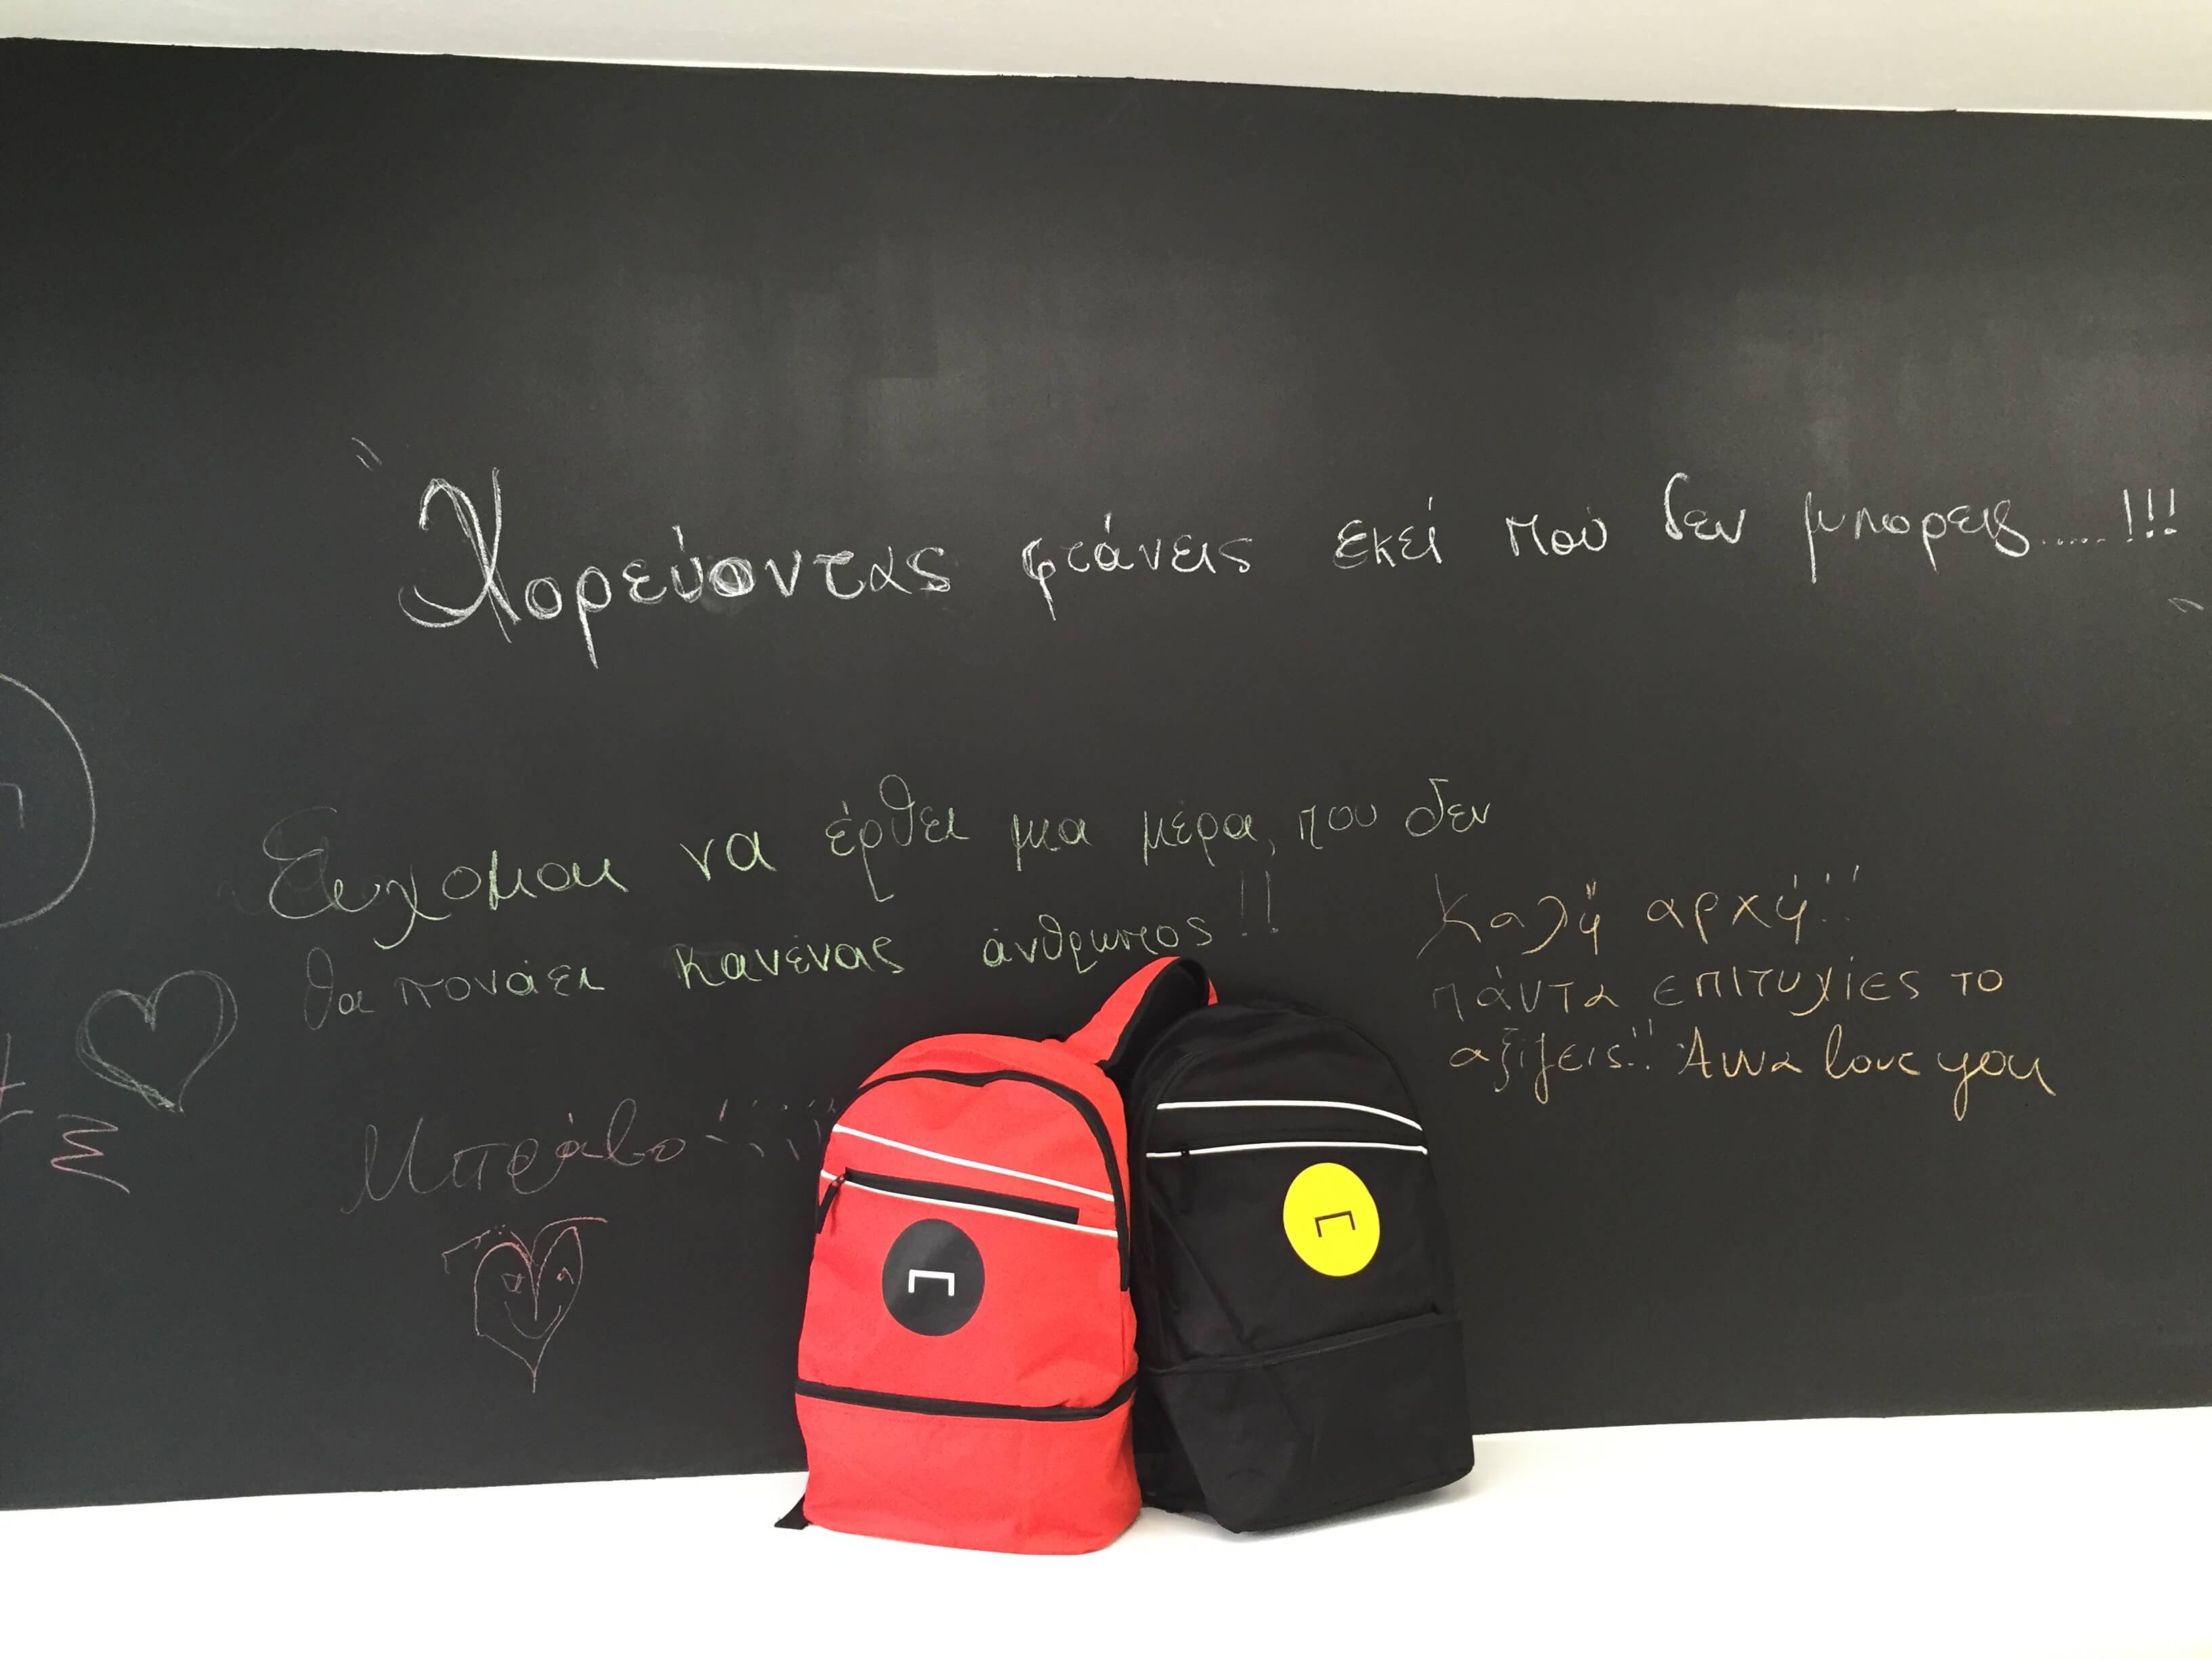 "Χορεύοντας φτάνεις εκεί που δεν μπορείς.....!!!"
Εύχομαι να έρθει μια μέρα, που δεν
θα πονάει κανένας άνθρωπος!!
Καλή αρχή!!
πάντα επιτυχίες το
αξίζεις!! Άννα love you
Μπράβο!!!!